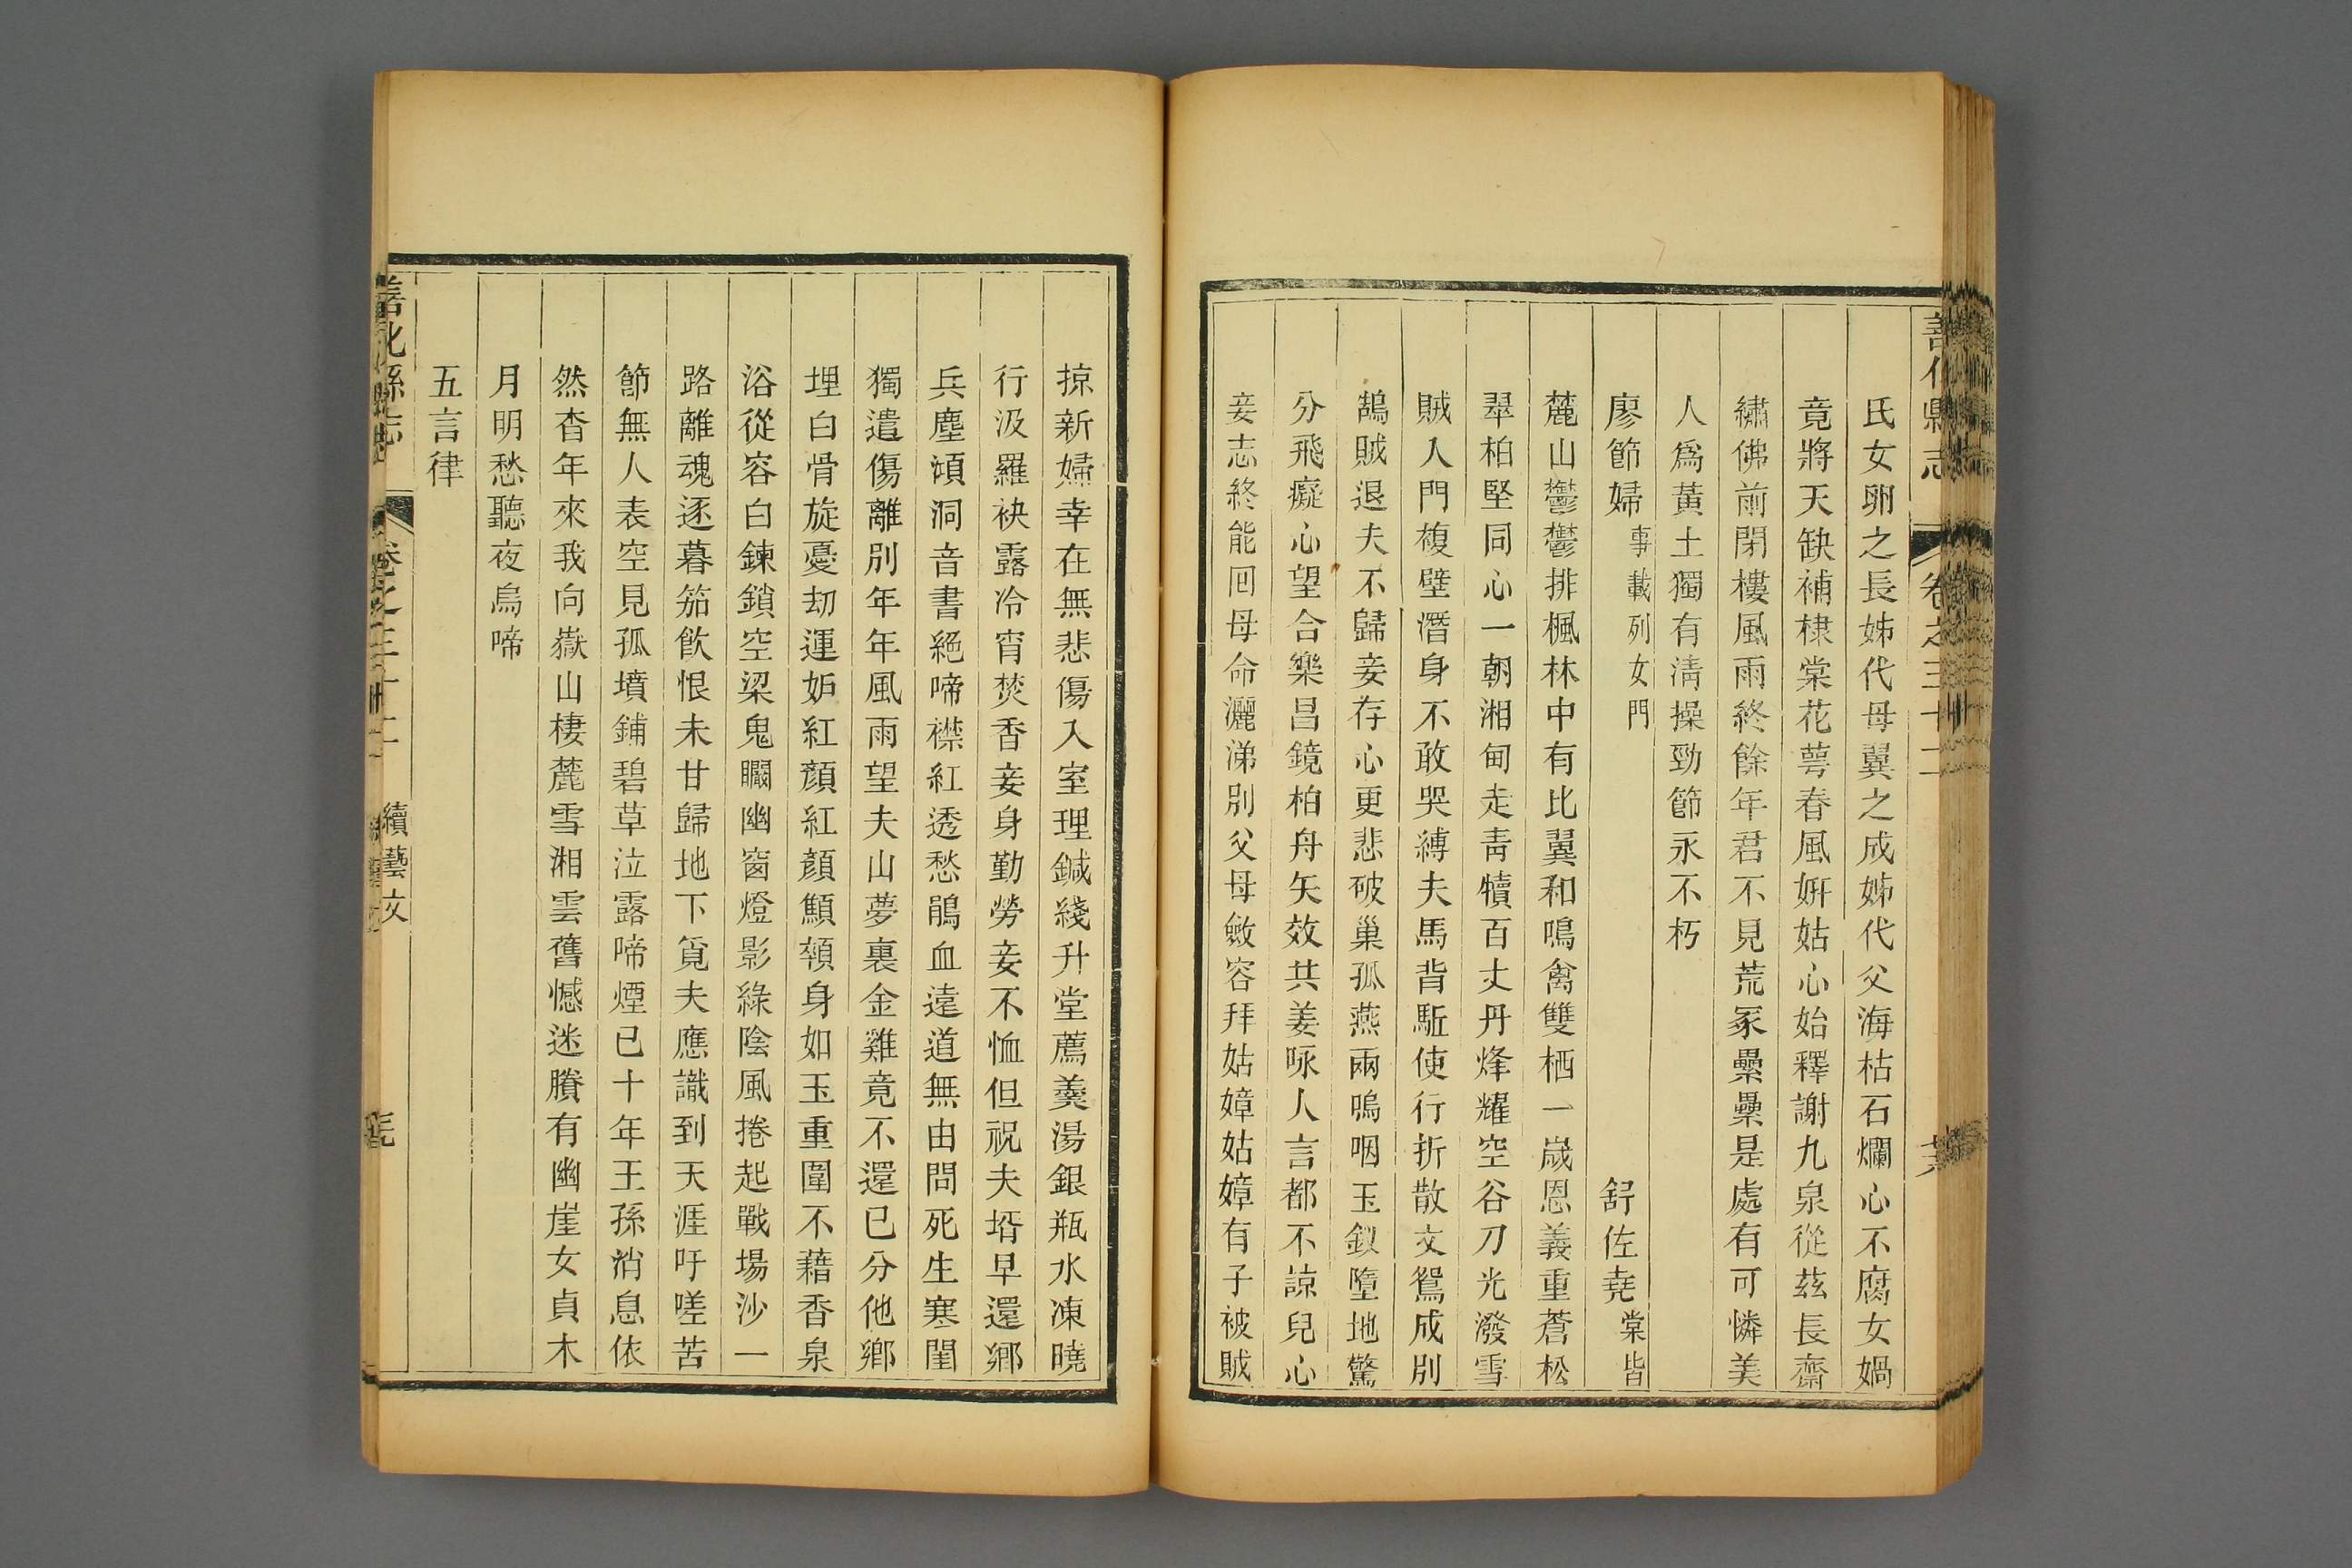 善化縣志 卷之三十二
氏女卵之長姊代母翼之成姊代父海枯石爛心不腐女媧
竟將天缺補棣棠花萼春風妍姑心始釋謝九泉從茲長齋
繡佛前閉樓風雨終餘年君不見荒冢纍纍是處有可憐美
人爲黃土獨有淸操勁節永不朽
廖節婦 事載列女門 舒佐堯 棠皆
麓山鬱鬱排楓林中有比翼和鳴禽雙栖一嵗恩義重蒼松
翠柏堅同心一朝湘甸走靑犢百丈丹烽耀空谷刀光潑雪
賊人門複壁潛身不敢哭縛夫馬背駈使行折散文鴛成別
鵠賊退夫不歸妾存心更悲破巢孤燕兩嗚咽玉釵墮地驚
分飛癡心望合樂昌鏡柏舟矢效共姜咏人言都不諒兒心
妾志終能回母命灑涕別父母斂容拜姑嫜姑嫜有子被賊
掠新婦幸在無悲傷入室理鍼綫升堂薦羹湯銀瓶水凍曉
行汲羅袂露冷宵焚香妾身勤勞妾不恤但祝夫壻早還鄉
兵塵澒洞音書絕啼襟紅透愁鵑血遠道無由問死生寒閨
獨遣傷離別年年風雨望夫山夢裏金雞竟不還已分他鄉
埋白骨旋憂劫運妒紅顏紅顏顦顇身如玉重圍不藉香泉
浴從容白鍊鎖空梁鬼瞷幽窗燈影綠陰風捲起戰場沙一
路離魂逐暮笳飲恨未甘歸地下覓夫應識到天涯吁嗟苦
節無人表空見孤墳鋪碧草泣露啼煙已十年王孫消息依
然杳年來我向嶽山棲麓雪湘雲舊憾迷賸有幽崖女貞木
月明愁聽夜烏啼
五言律
善化縣志 卷之三十二 續藝文